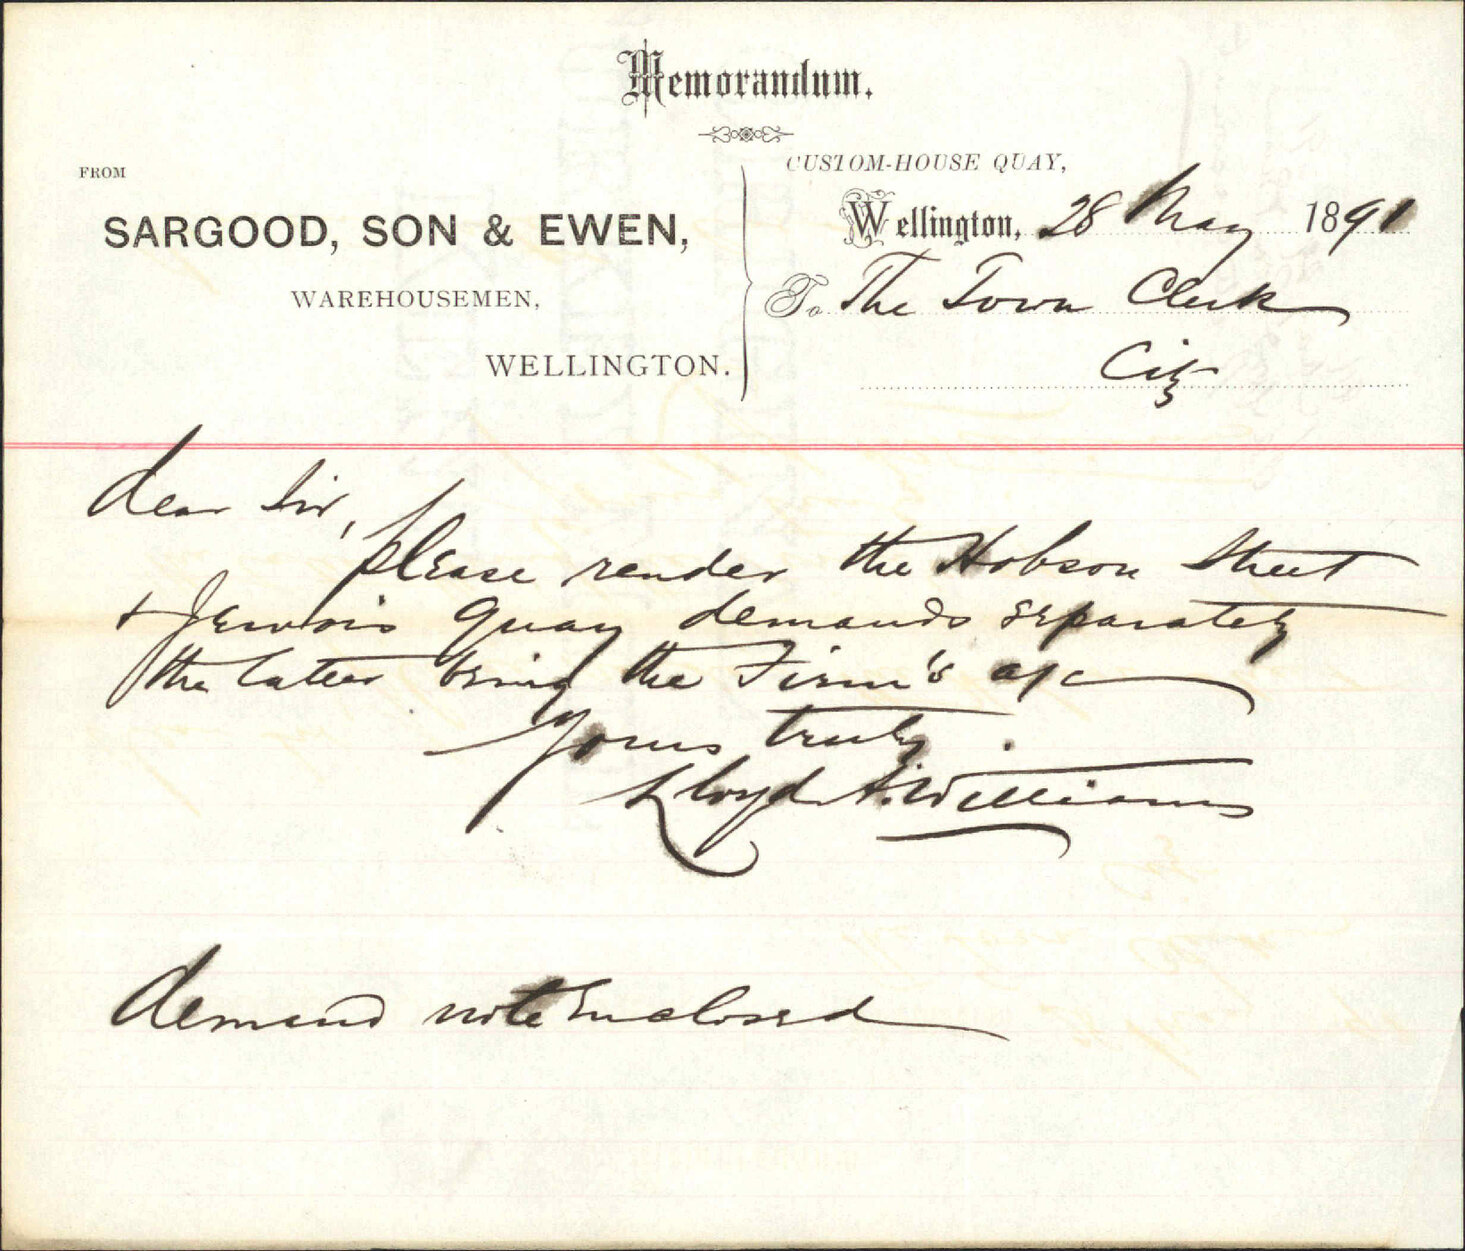 Memorandum.
FROM
SARGOOD, SON & EWEN,
WAREHOUSEMEN,
WELLINGTON.
CUSTOM-HOUSE QUAY,
Wellington, 28 May 1891
To The Town Clerk
City
Dear Sir,
Please render the Hobson Street
& Jervois Quay demands separately
the latter being the Firm's a/c
Yours truly.
Lloyd A. Williams
Demand note Enclosed